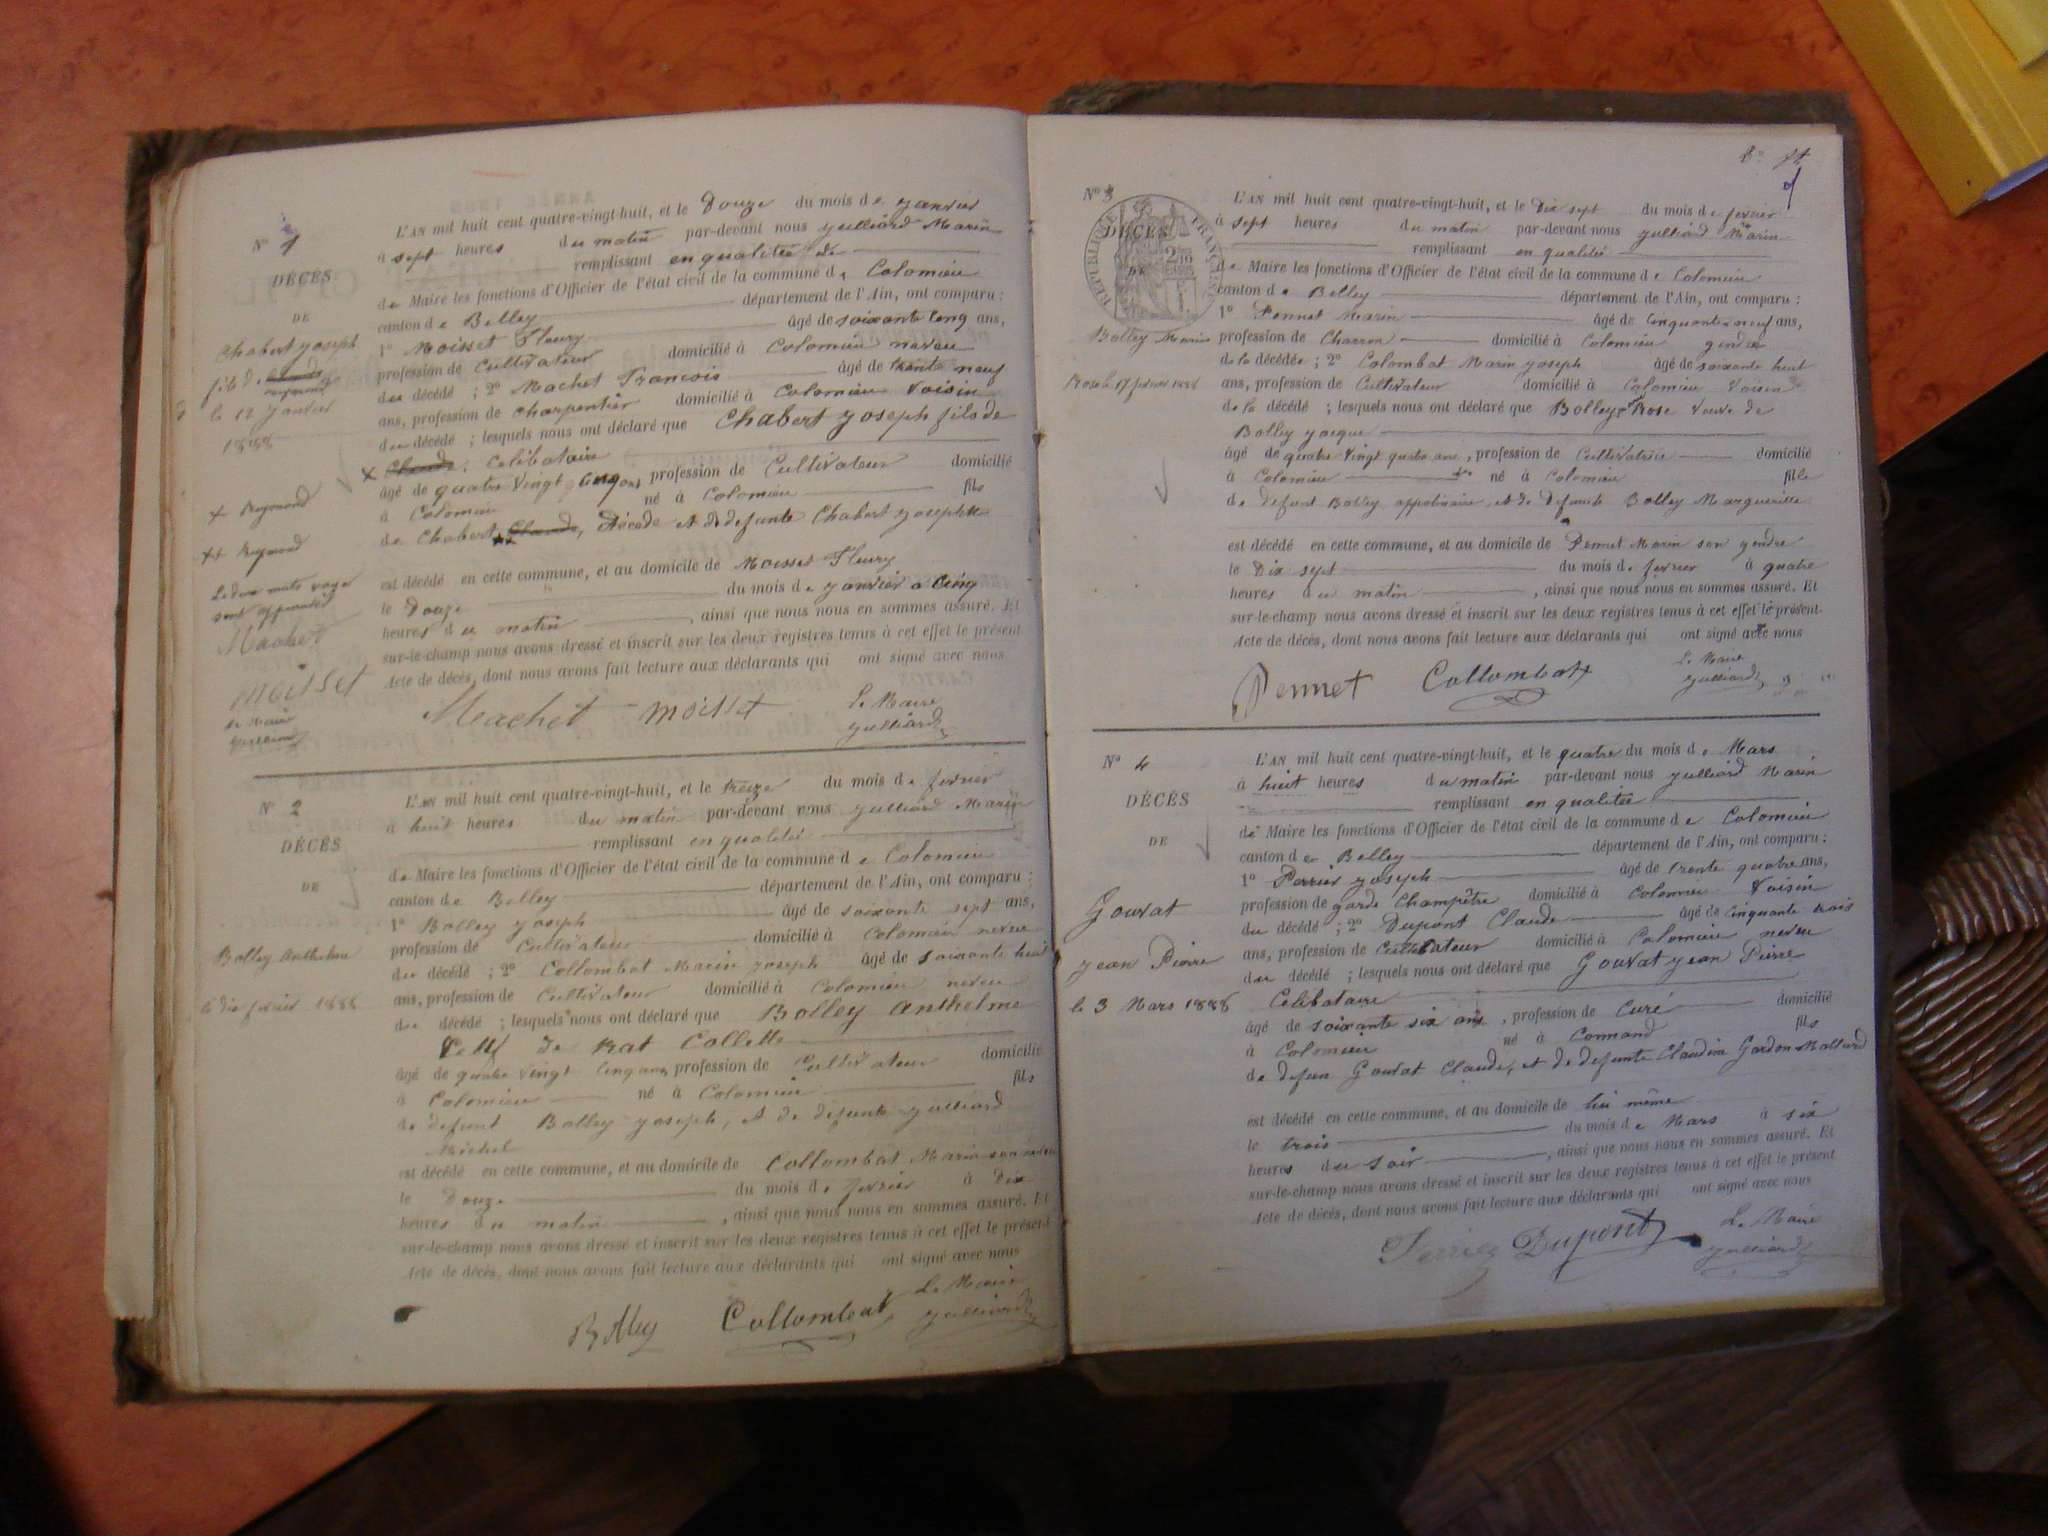 N° 1
DÉCÈS
DE
Chabert Joseph
fils de Claude
Reymond
le 12 Janvier
1888
+ Reymond
++ Reymond
Le deux mots rayer
sont approuvés
Machet
Moisset
Le Maire
Julliard
L'AN mil huit cent quatre-vingt-huit, et le Douze du mois de Janvier
à sept heures du matin par-devant nous Julliard Marin
remplissant en qualitée de
de Maire les fonctions d'Officier de l'état civil de la commune de Colomieu
canton de Belley département de l'Ain, ont comparu :
1° Moisset Fleury âgé de soixante cinq ans,
profession de Cultivateur domicilié à Colomieu neveu
du décédé ; 2° Machet Francois âgé de trente neuf
ans, profession de Charpentier domicilié à Colomieu Voisin
du décédé ; lesquels nous ont déclaré que Chabert Joseph fils de
+ Claude, Celibataire
âgé de quatre Vingt Cinq ans, profession de Cultivateur domicilié
à Colomieu né à Colomieu fils
de Chabert ++ Claude, Décédé et de defunte Chabert Josephte
est décédé en cette commune, et au domicile de Moisset Fleury
le Douze du mois de Janvier à Cinq
heures du matin , ainsi que nous nous en sommes assuré. Et
sur-le-champ nous avons dressé et inscrit sur les deux registres tenus à cet effet le présent
Acte de décès, dont nous avons fait lecture aux déclarants qui ont signé avec nous
Machet Moisset Le Maire
Julliard
N° 2
DÉCÈS
DE
Bolley Anthelme
L'AN mil huit cent quatre-vingt-huit, et le treize du mois de fevrier
à huit heures du matin par-devant nous Julliard Marin
remplissant en qualité
de Maire les fonctions d'Officier de l'état civil de la commune de Colomieu
canton de Belley département de l'Ain, ont comparu :
1° Bolley Joseph âgé de soixante sept ans,
profession de Cultivateur domicilié à Colomieu neveu
du décédé ; 2° Collombat Marin Joseph âgé de soixante huit
ans, profession de Cultivateur domicilié à Colomieu neveu
du décédé ; lesquels nous ont déclaré que Bolley Anthelme
Collette
âgé de quatre Vingt Cinq ans, profession de Cultivateur domicilié
à Colomieu né à Colomieu fils
de defunt Bolley Joseph, et de defunte Julliard
Michel
est décédé en cette commune, et au domicile de Collombat Marin son neveu
le Douze du mois de fevrier à Dix
heures du matin , ainsi que nous nous en sommes assuré. Et
sur-le-champ nous avons dressé et inscrit sur les deux registres tenus à cet effet le présent
Acte de décès, dont nous avons fait lecture aux déclarants qui ont signé avec nous
Bolley Collombat Le Maire
Julliard
N° 3
DÉCÈS
DE
RÉPUBLIQUE FRANÇAISE
Bolley Marie
Rose le 17 fevrier 1888
L'AN mil huit cent quatre-vingt-huit, et le Dix sept du mois de fevrier
à sept heures du matin par-devant nous Julliard Marin
remplissant en qualité
de Maire les fonctions d'Officier de l'état civil de la commune de Colomieu
canton de Belley département de l'Ain, ont comparu :
1° Pennet Marin âgé de Cinquante neuf ans,
profession de Charron domicilié à Colomieu gendre
de la décédée ; 2° Colombat Marin Joseph âgé de soixante huit
ans, profession de Cultivateur domicilié à Colomieu Voisin
de la décédé ; lesquels nous ont déclaré que Bolley Rose Veuve de
Bolley Jacque
âgé de quatre Vingt quatre ans, profession de Cultivatrice domicilié
à Colomieu né à Colomieu fille
de defunt Bolley appolinaire, et de Defunte Bolley Margueritte
est décédé en cette commune, et au domicile de Pennet Marin son gendre
le Dix sept du mois de fevrier à quatre
heures du matin , ainsi que nous nous en sommes assuré. Et
sur-le-champ nous avons dressé et inscrit sur les deux registres tenus à cet effet le présent
Acte de décès, dont nous avons fait lecture aux déclarants qui ont signé avec nous
Pennet Collombat Le Maire
Julliard
N° 4
DÉCÈS
DE
Gouvat
Jean Pierre
le 3 Mars 1888
L'AN mil huit cent quatre-vingt-huit, et le quatre du mois de Mars
à huit heures du matin par-devant nous Julliard Marin
remplissant en qualitée
de Maire les fonctions d'Officier de l'état civil de la commune de Colomieu
canton de Belley département de l'Ain, ont comparu :
1° Perrier Joseph âgé de trente quatre ans,
profession de garde Champêtre domicilié à Colomieu Voisin
du décédé ; 2° Dupont Claude âgé de Cinquante trois
ans, profession de Cultivateur domicilié à Colomieu neveu
du décédé ; lesquels nous ont déclaré que Gouvat Jean Pierre
Celibataire
âgé de soixante six ans, profession de Curé domicilié
à Colomieu né à Connand fils
de defun Gouvat Claude, et de defunte Claudine Gardon Mallard
est décédé en cette commune, et au domicile de lui même
le trois du mois de Mars à six
heures du soir , ainsi que nous nous en sommes assuré. Et
sur-le-champ nous avons dressé et inscrit sur les deux registres tenus à cet effet le présent
Acte de décès, dont nous avons fait lecture aux déclarants qui ont signé avec nous
Perrier Dupont Le Maire
Julliard